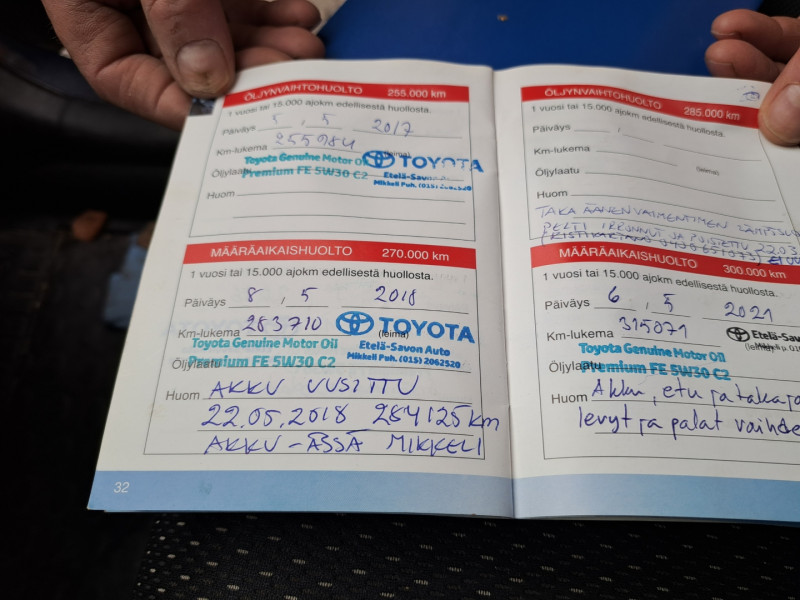 ÖLJYNVAIHTOHUOLTO 255.000 km
1 vuosi tai 15.000 ajokm edellisestä huollosta.
Päiväys 5 . 5 2017
Km-lukema 255984
(leima)
TOYOTA
Etelä-Savon
Mikkeli Puh. (015)
Toyota Genuine Motor Oil
Öljylaatu Premium FE 5W30 C2
Huom
MÄÄRÄAIKAISHUOLTO 270.000 km
1 vuosi tai 15.000 ajokm edellisestä huollosta.
Päiväys 8 . 5 2018
Km-lukema 283710
(leima)
TOYOTA
Etelä-Savon Auto
Mikkeli Puh. (015) 2062520
Toyota Genuine Motor Oil
Öljylaatu Premium FE 5W30 C2
Huom AKKU UUSITTU
22.05.2018 284125km
AKKU-ÄSSÄ MIKKELI
32
ÖLJYNVAIHTOHUOLTO 285.000 km
1 vuosi tai 15.000 ajokm edellisestä huollosta.
Päiväys
Km-lukema
(leima)
Öljylaatu
Huom
TAKA ÄÄNENVAIMENTIMEN
PELTI IRRONNUT JA POISTETTU 22.03
MÄÄRÄAIKAISHUOLTO 300.000 km
1 vuosi tai 15.000 ajokm edellisestä huollosta.
Päiväys 6 . 5 2021
Km-lukema 315071
(leima)
Etelä-Savo
Toyota Genuine Motor Oil
Öljylaatu Premium FE 5W30 C2
Huom Akku, etu ja taka ja
levyt ja palat vaihde